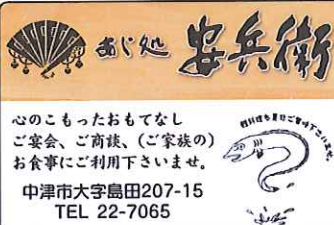 あじ処 安兵衛
心のこもったおもてなし
ご宴会、ご商談、(ご家族の)
お食事にご利用下さいませ。
中津市大字島田207-15
TEL 22-7065